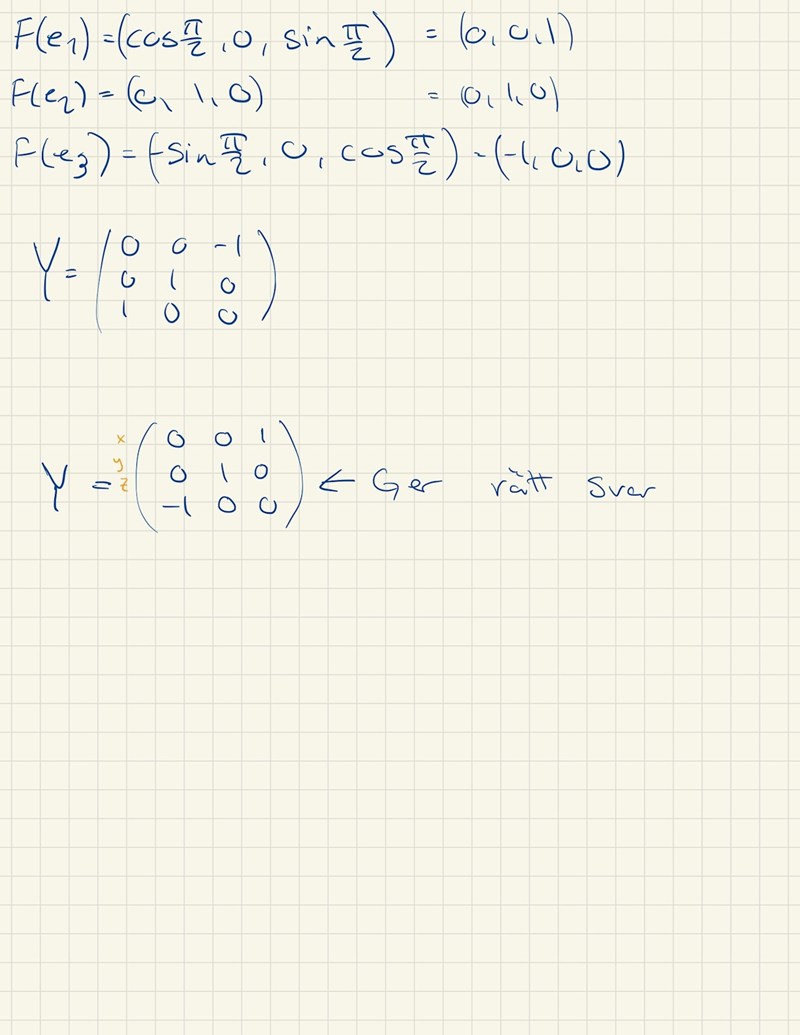 F(e₁) = (cos π/2, 0, sin π/2) = (0, 0, 1)
F(e₂) = (0, 1, 0) = (0, 1, 0)
F(e₃) = (-sin π/2, 0, cos π/2) = (-1, 0, 0)
Y = ( 0 0 -1
0 1 0
1 0 0 )
x ( 0 0 1
Y = y 0 1 0 ← Ger rätt svar
z -1 0 0 )